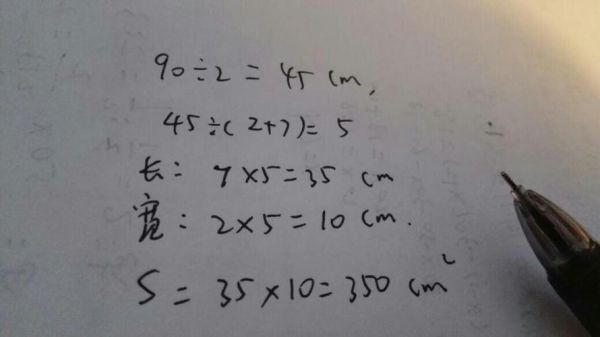 90÷2=45 cm,
45÷(2+7)=5
长: 7×5=35 cm
宽: 2×5=10 cm.
S=35×10=350 cm²